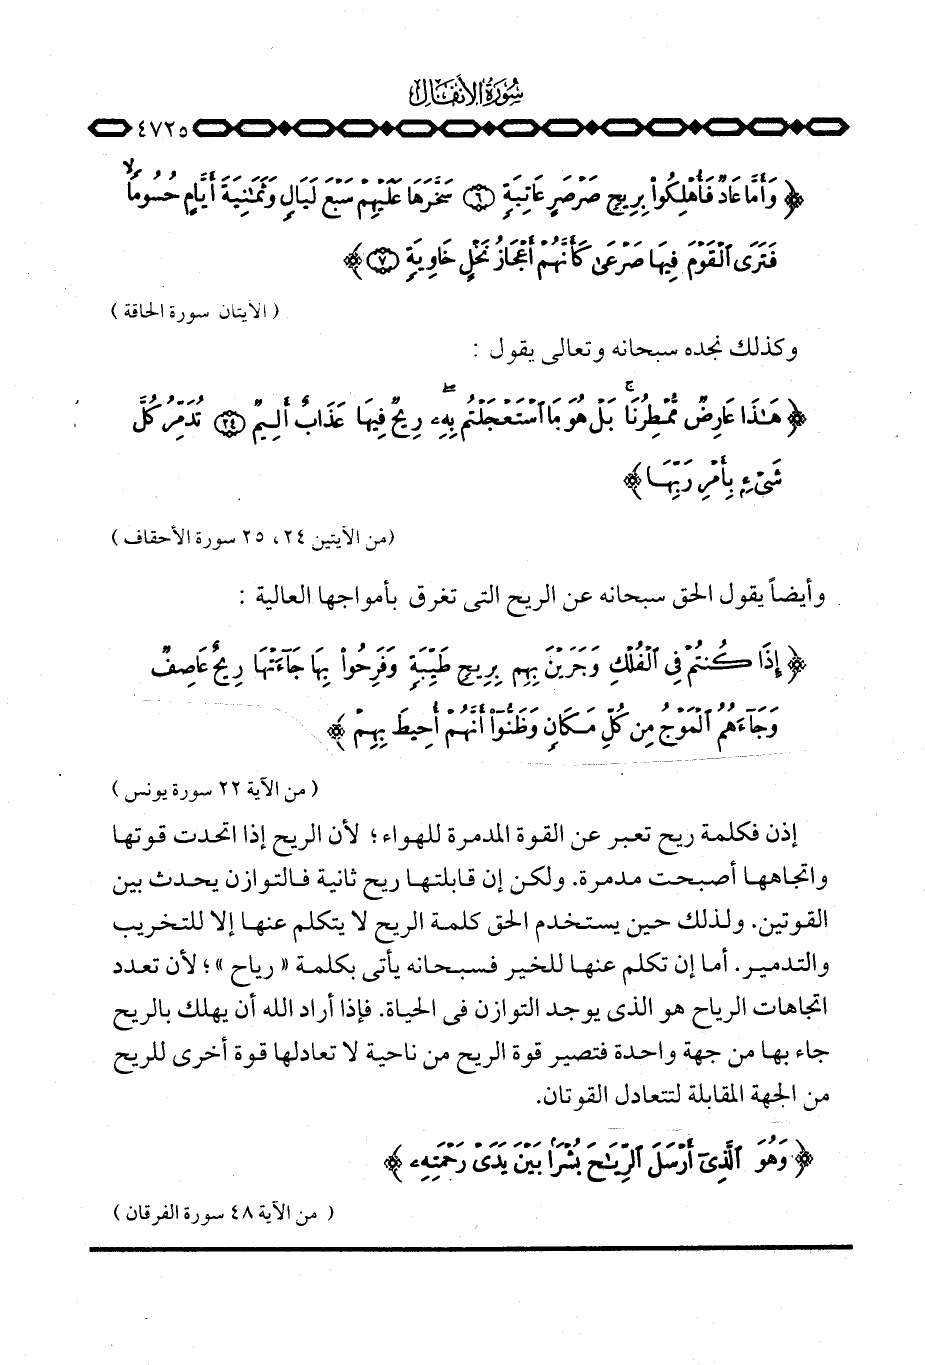 سورة الأنفال
٤٧٢٥
﴿ وَأَمَّا عَادٌ فَأُهْلِكُوا۟ بِرِيحٍ صَرْصَرٍ عَاتِيَةٍ ﴿٦﴾ سَخَّرَهَا عَلَيْهِمْ سَبْعَ لَيَالٍ وَثَمَـٰنِيَةَ أَيَّامٍ حُسُومًا ۙ
فَتَرَى ٱلْقَوْمَ فِيهَا صَرْعَىٰ كَأَنَّهُمْ أَعْجَازُ نَخْلٍ خَاوِيَةٍ ﴿٧﴾ ﴾
( الآيتان سورة الحاقة )
وكذلك نجده سبحانه وتعالى يقول :
﴿ هَـٰذَا عَارِضٌ مُّمْطِرُنَا ۚ بَلْ هُوَ مَا ٱسْتَعْجَلْتُم بِهِۦ ۖ رِيحٌ فِيهَا عَذَابٌ أَلِيمٌ ﴿٢٤﴾ تُدَمِّرُ كُلَّ
شَىْءٍۭ بِأَمْرِ رَبِّهَا ﴾
(من الآيتين ٢٤ ، ٢٥ سورة الأحقاف )
وأيضاً يقول الحق سبحانه عن الريح التى تغرق بأمواجها العالية :
﴿ إِذَا كُنتُمْ فِى ٱلْفُلْكِ وَجَرَيْنَ بِهِم بِرِيحٍ طَيِّبَةٍ وَفَرِحُوا۟ بِهَا جَآءَتْهَا رِيحٌ عَاصِفٌ
وَجَآءَهُمُ ٱلْمَوْجُ مِن كُلِّ مَكَانٍ وَظَنُّوٓا۟ أَنَّهُمْ أُحِيطَ بِهِمْ ﴾
( من الآية ٢٢ سورة يونس )
إذن فكلمة ريح تعبر عن القوة المدمرة للهواء ؛ لأن الريح إذا اتحدت قوتها
واتجاهها أصبحت مدمرة. ولكن إن قابلتها ريح ثانية فالتوازن يحدث بين
القوتين. ولذلك حين يستخدم الحق كلمة الريح لا يتكلم عنها إلا للتخريب
والتدمير. أما إن تكلم عنها للخير فسبحانه يأتى بكلمة « رياح » ؛ لأن تعدد
اتجاهات الرياح هو الذى يوجد التوازن فى الحياة. فإذا أراد الله أن يهلك بالريح
جاء بها من جهة واحدة فتصير قوة الريح من ناحية لا تعادلها قوة أخرى للريح
من الجهة المقابلة لتتعادل القوتان.
﴿ وَهُوَ ٱلَّذِىٓ أَرْسَلَ ٱلرِّيَـٰحَ بُشْرًۢا بَيْنَ يَدَىْ رَحْمَتِهِۦ ﴾
( من الآية ٤٨ سورة الفرقان )